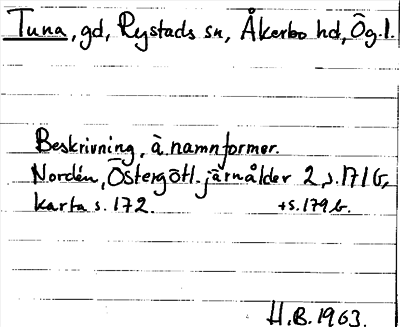 Tuna, gd, Rystads sn, Åkerbo hd, Ög.l.
Beskrivning, ä. namnformer.
Nordén, Östergötl. järnålder 2, s. 171 b,
karta s. 172. +s. 179 b.
H.B. 1963.